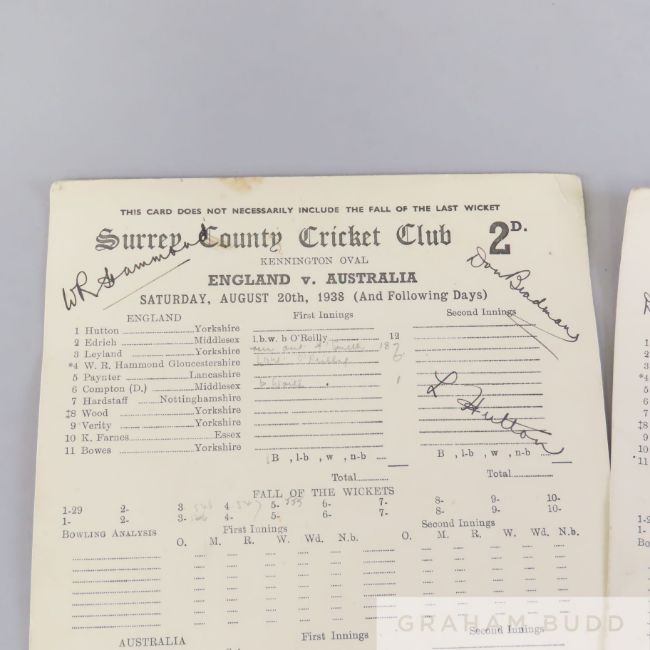 THIS CARD DOES NOT NECESSARILY INCLUDE THE FALL OF THE LAST WICKET
Surrey County Cricket Club 2D.
KENNINGTON OVAL
WR Hammond
Don Bradman
ENGLAND v. AUSTRALIA
SATURDAY, AUGUST 20th, 1938 (And Following Days)
ENGLAND First Innings Second Innings
1 Hutton Yorkshire
2 Edrich Middlesex l.b.w. b O'Reilly 12
3 Leyland Yorkshire run out 187
*4 W. R. Hammond Gloucestershire
5 Paynter Lancashire
6 Compton (D.) Middlesex b Waite 1
7 Hardstaff Nottinghamshire
‡8 Wood Yorkshire
9 Verity Yorkshire
10 K. Farnes Essex
11 Bowes Yorkshire
L Hutton
B , l-b , w , n-b .... B , l-b , w , n-b ....
Total Total
FALL OF THE WICKETS
1-29 2- 3- 4- 5- 6- 7- 8- 9- 10-
1- 2- 3- 4- 5- 6- 7- 8- 9- 10-
BOWLING ANALYSIS First Innings Second Innings
O. M. R. W. Wd. N.b. O. M. R. W. Wd. N.b.
AUSTRALIA First Innings Second Innings
GRAHAM BUDD